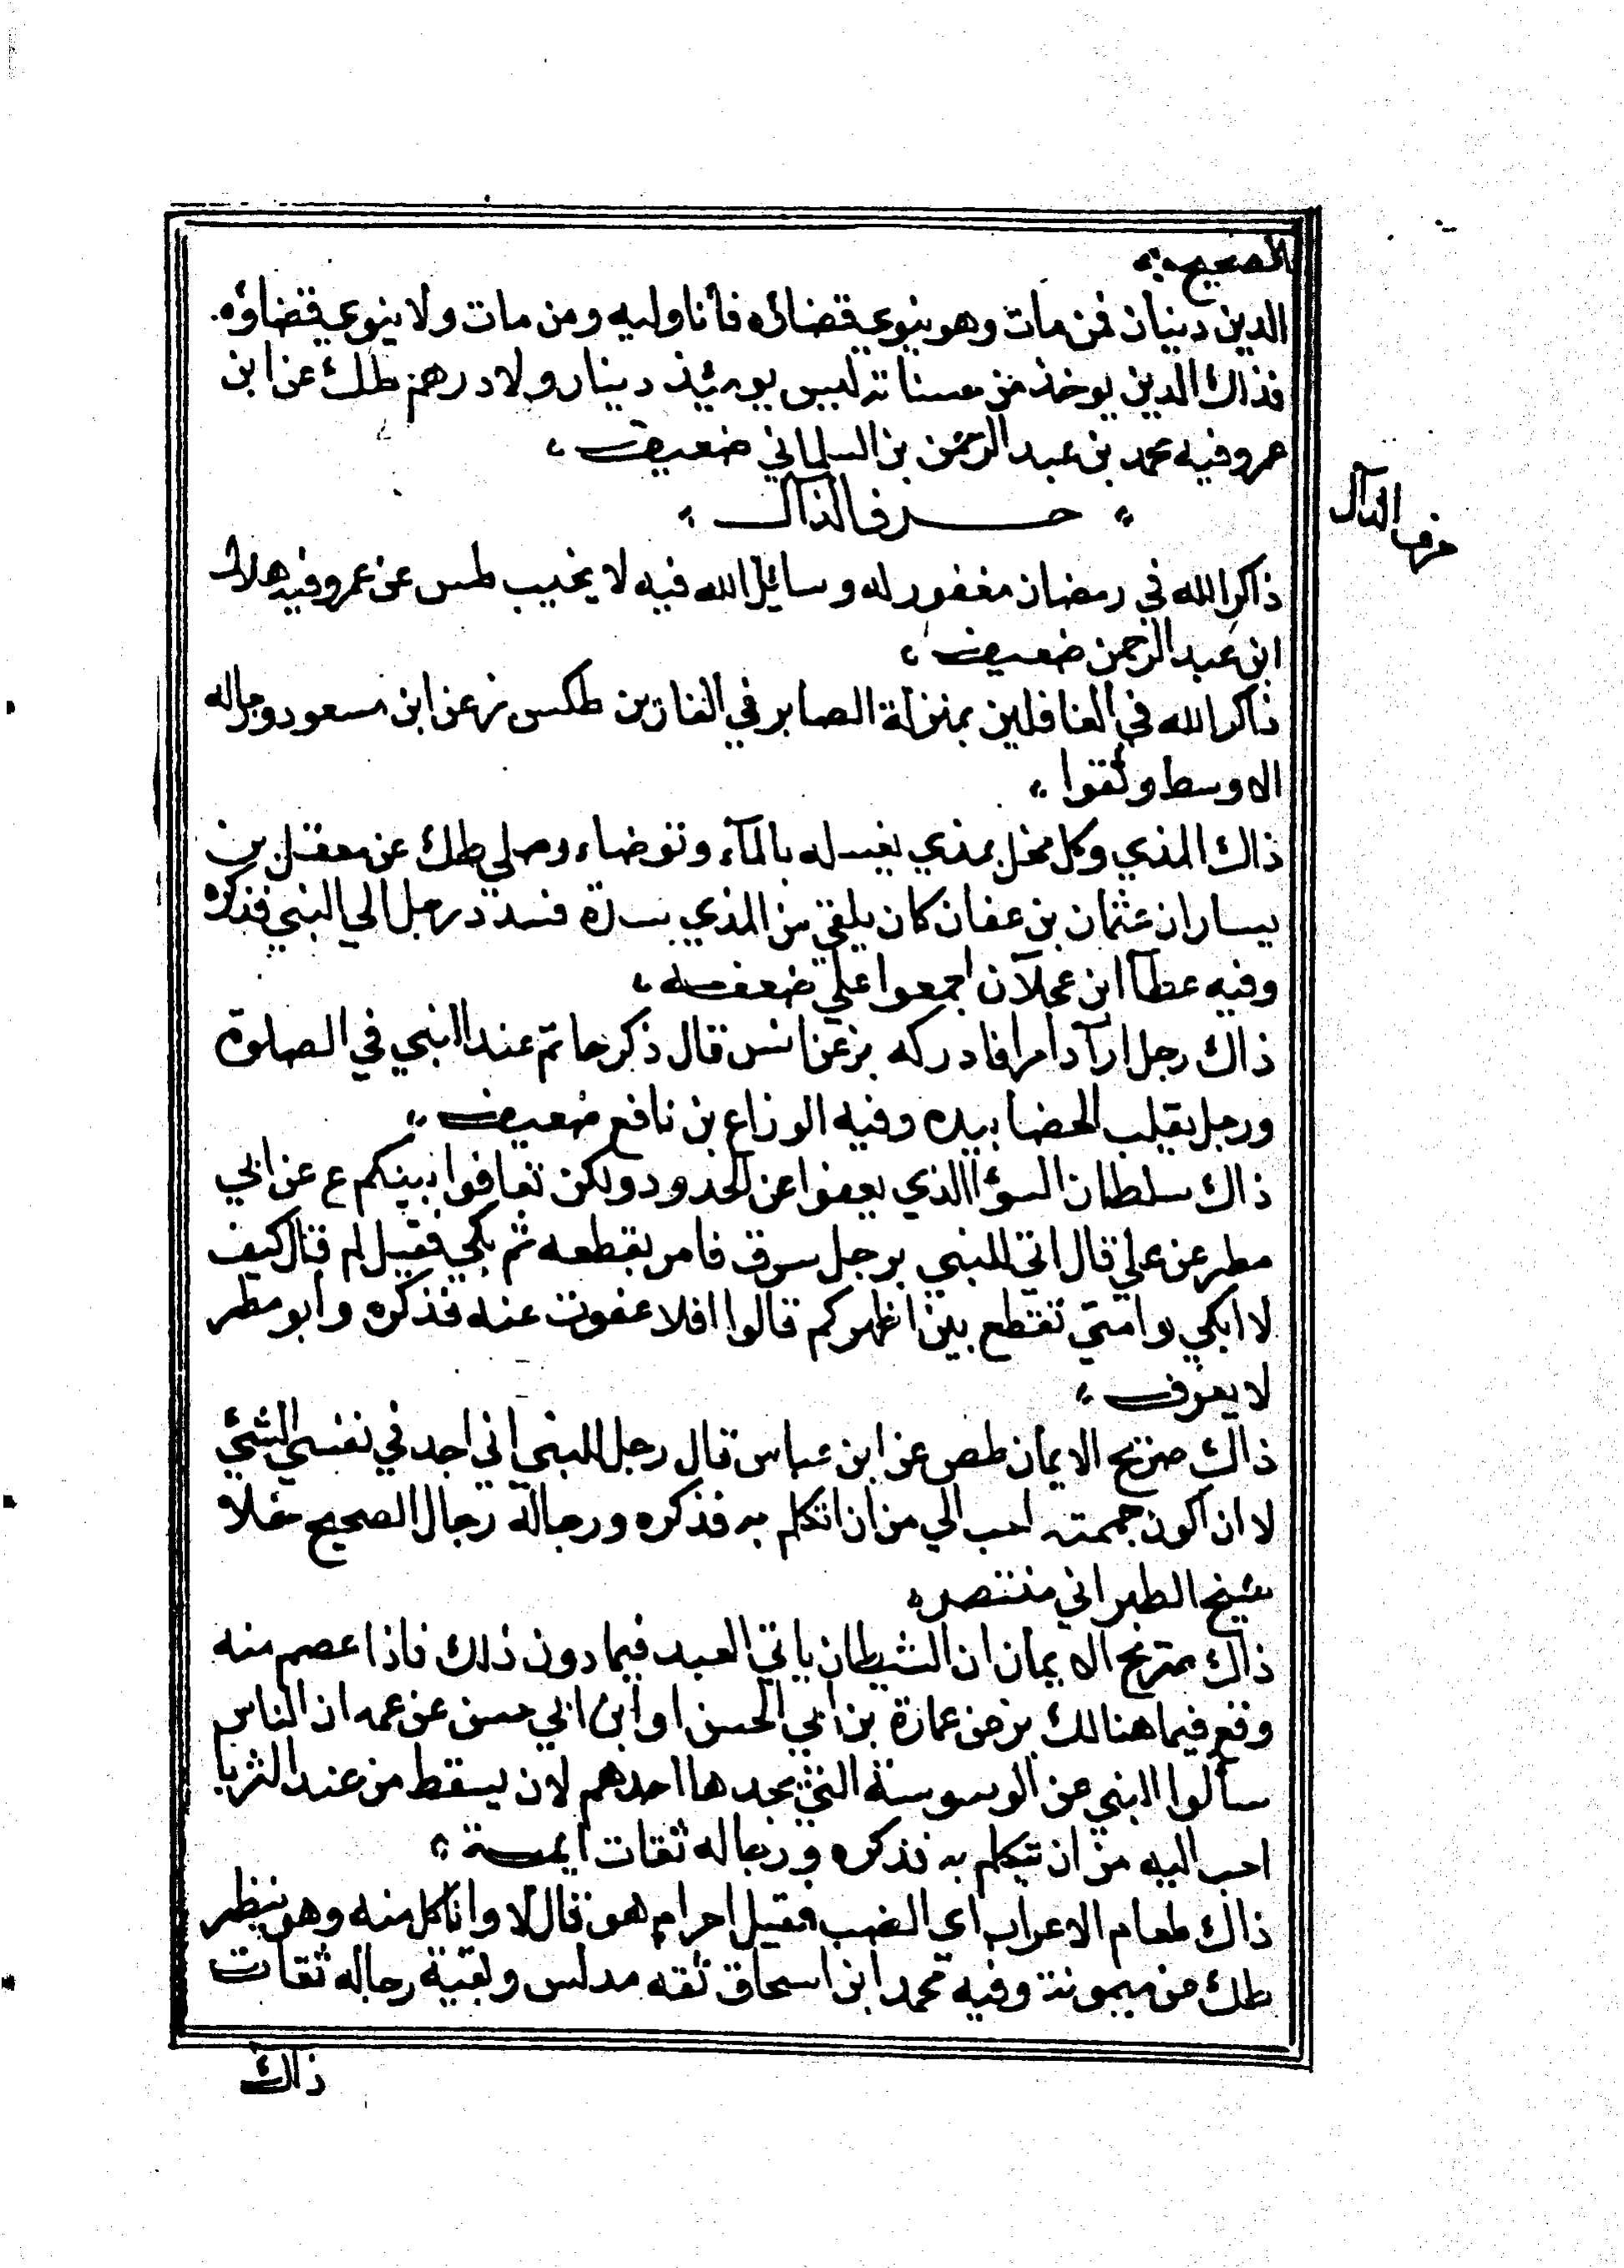 الصحيح
الدين دينان فمن مات وهو ينوي قضائه فأنا وليه ومن مات ولا ينوي قضاؤه
فذاك الدين يوخذ من حسناته ليس يومئذ دينار ولا درهم طك عن ابن
عمر وفيه محمد بن عبد الرحمن بن السلماني ضعيف
حرف الذال
حرف الذال
ذاكر الله في رمضان مغفور له وسائل الله فيه لا يخيب طس عن عمر وفيه هلال
ابن عبد الرحمن ضعيف
ذاكر الله في الغافلين بمنزلة الصابر في الفازين طكس ز عن ابن مسعود ورجاله
الاوسط وثقوا
ذاك المذي وكل فحل يمذي يغسله بالمآء وتوضاء وصلي طك عن معقل بن
يسار ان عثمان بن عفان كان يلقي من المذي شدة فسدد رجل الي النبي فذكره
وفيه عطآ ابن عجلآن اجمعوا علي ضعفه
ذاك رجل ارآد امرا فادركه بز عن انس قال ذكر حاتم عند النبي في الصلوة
ورجل يقلب الحضا بيده وفيه الوزاع بن نافع ضعيف
ذاك سلطان السوٌ الذي يعفوا عن الحدود ولكن تعافوا بينكم ع عن ابي
مطر عن علي قال اتي للنبي برجل سرق فامر بقطعه ثم بكي فقيل لم قال كيف
لا ابكي وامتي تقطع بين اظهركم قالوا افلا عفوت عنه فذكره وابو مطر
لا يعرف
ذاك صريح الايمان طص عن ابن عباس قال رجل للنبي اني اجد في نفسي الشيٌ
لان اكون حممة احب الي من ان اتكلم به فذكره ورجاله رجال الصحيح خلا
شيخ الطبراني منتصر
ذاك صريح الايمان ان الشيطان ياتي العبد فيما دون ذلك فاذا عصم منه
وقع فيما هنالك بز عن عمارة بن ابي الحسن او ابن ابي حسن عن عمه ان الناس
سألوا النبي عن الوسوسة التي يجدها احدهم لان يسقط من عند الثريا
احب اليه من ان يتكلم به فذكره ورجاله ثقات ايمة
ذاك طعام الاعراب اي الضب فقيل احرام هو قال لا وانا كل منه وهو ينظر
طك عن ميمونة وفيه محمد ابن اسحاق ثقه مدلس وبقية رجاله ثقات
ذاك